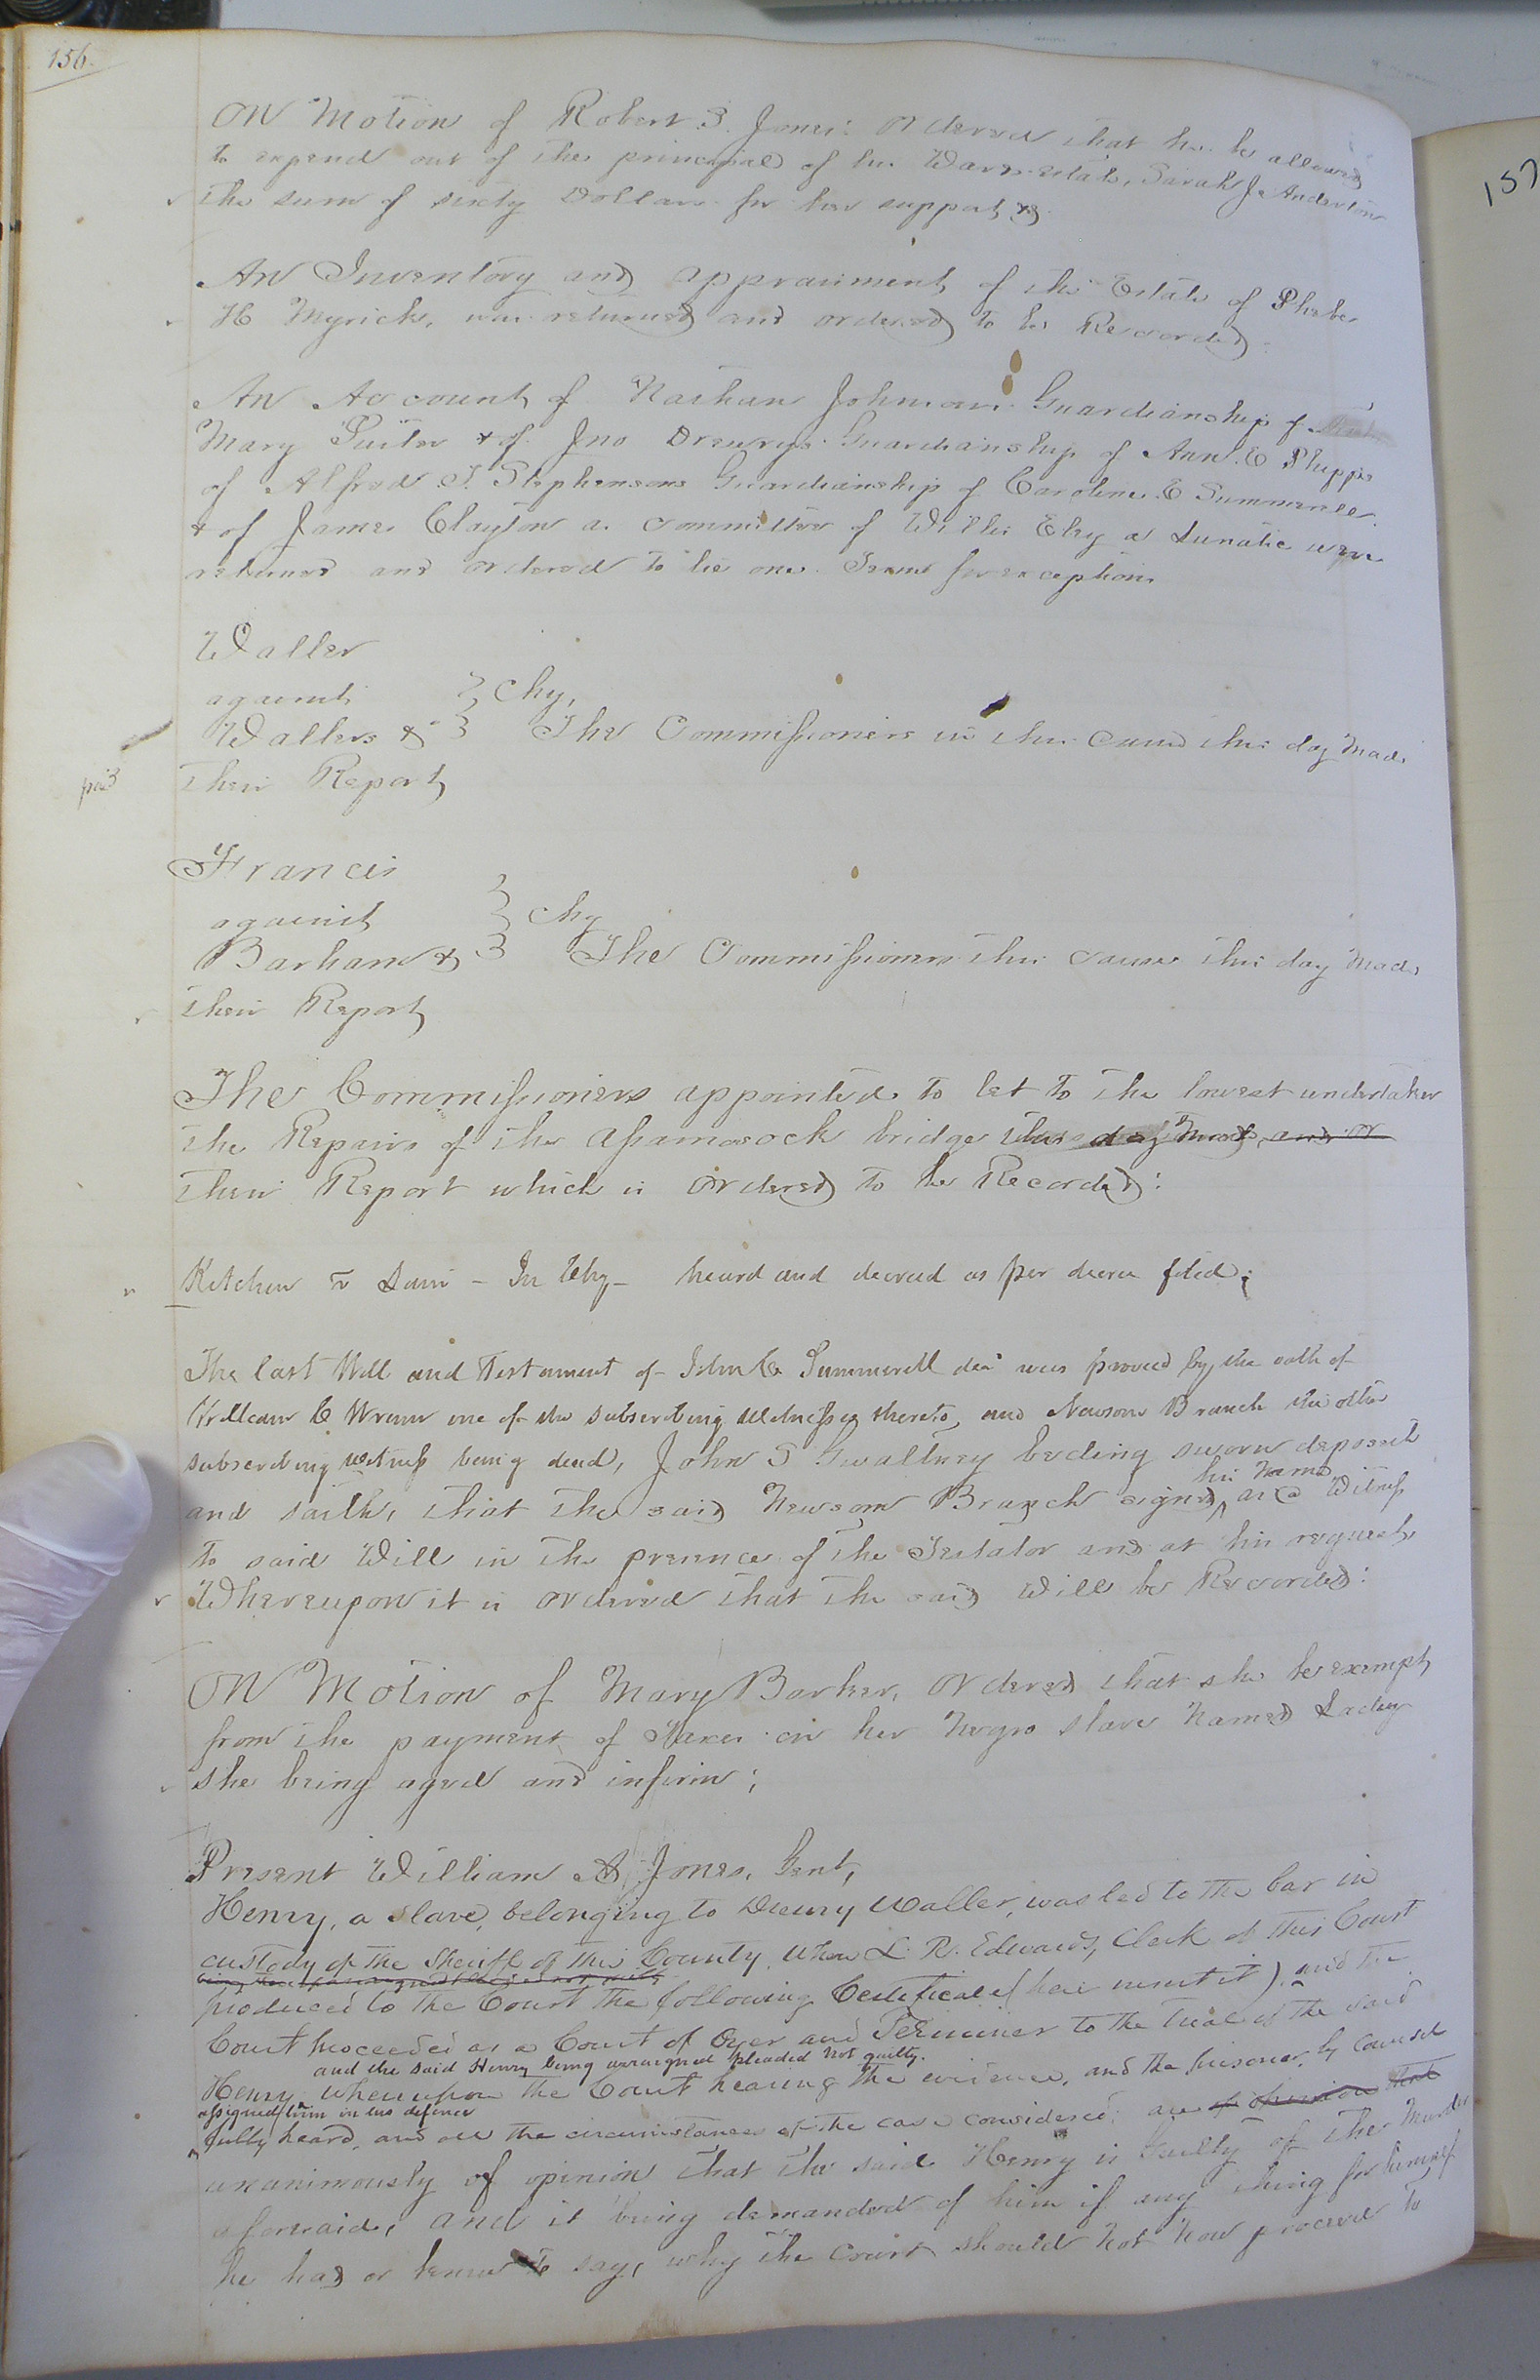 156.
On Motion of Robert S. Jones: Ordered that he be allowed
to expend out of the principal of his Wards estate, Sarah J. Anderton
the sum of sixty Dollars for her support &c
An Inventory and appraisment of the Estate of Phebe
H Myrick, was returned and ordered to be Recorded.
An Account of Nathan Johnson Guardianship of
Mary Suiter & of Jno Drewrys Guardianship of Ann. E Phipps
of Alfred J. Stephensons Guardianship of Caroline E Summerell.
& of James Clayton a. committee of Willis Eley a Lunatic were
returned and ordered to lie one Term for exception
Waller
against } Chy,
Wallers &c } The Commissioners in this Cause this day Made
their Report
Francis
against } Chy
Barham & } The Commissioners this cause this day Made
their Report
The Commissioners appointed to let to the lowest undertaker
the Repairs of the Assamosock bridge this day Made, and or
their Report which is Ordered to be Recorded:
Kitchen vs Davis – In Chy – heard and decreed as per decree filed;
The last Will and Testament of John C. Summerell decd was proved by the oath of
William C Wrenn one of the subscribing Witnesses thereto, and Newsom Branch the other
subscribing witness being dead, John S Gwaltney beeling sworn deposeth
his name
and saith, that the said Newsom Branch signed ^ as a Witness
to said Will in the presence of the Testator and at his request
Whereupon it is ordered that the said Will be Recorded:
On Motion of Mary Barker, Ordered that she be exempt
from the payment of Taxes on her Negro slave Named
she being aged and infirm;
Present William A Jones, Gent,
Henry, a slave, belonging to Drewry Waller, was led to the bar in
custody of the Sheriff of this County. When L. R. Edwards, Clerk of this Court
produced to the Court the following Certificate (here insert it), and the
Court proceeded as a Court of Oyer and Terminer to the trial of the said
and the said Henry being arraigned pleaded not guilty.
Henry, whereupon the Court hearing the evidence, and the prisoner, by counsel
assigned him in his defence
fully heard, and all the circumstances of the case considered: are of opinion that
unanimously of opinion that the said Henry is Guilty of the Murder
aforesaid, and it being demanded of him if any thing for himself
he had or knew to say, why the Court should not now proceed to
157